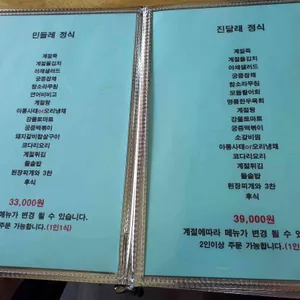 민들레 정식
계절죽
계절물김치
야채샐러드
궁중잡채
참소라무침
연어바비큐
계절탕
아롱사태or오리냉채
강풀토마토
궁중떡볶이
돼지갈비찹살구이
코다리요리
계절튀김
돌솥밥
된장찌개와 3찬
후식
33,000원
메뉴가 변경 될 수 있습니다.
주문 가능합니다.(1인1식)
진달래 정식
계절죽
계절물김치
야채샐러드
궁중잡채
참소라무침
모듬활어회
명품한우육회
계절탕
강풀토마토
궁중떡볶이
소갈비찜
아롱사태or오리냉채
코다리요리
계절튀김
돌솥밥
된장찌개와 3찬
후식
39,000원
계절에따라 메뉴가 변경 될 수
2인이상 주문 가능합니다.(1인